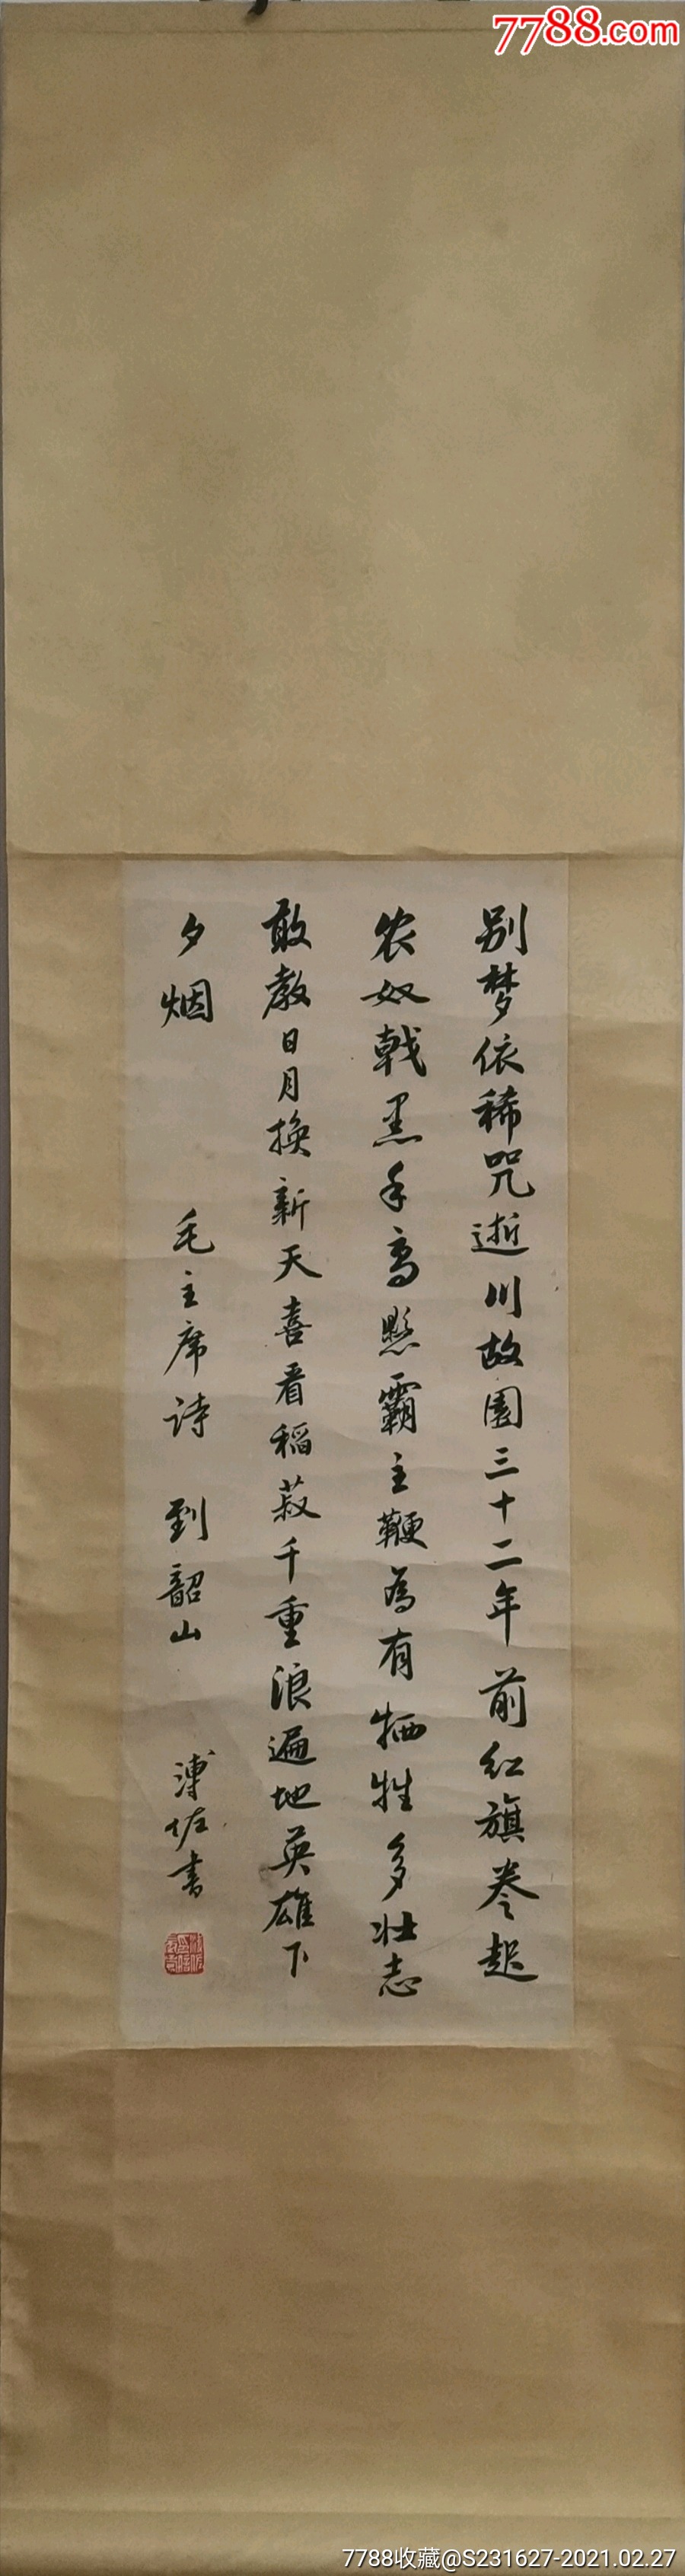 7788.com
别梦依稀咒逝川故園三十二年前红旗卷起
农奴戟黑手高懸霸主鞭為有牺牲多壮志
敢教日月换新天喜看稻菽千重浪遍地英雄下
夕烟 毛主席诗 到韶山 溥佐書
7788收藏@S231627-2021.02.27